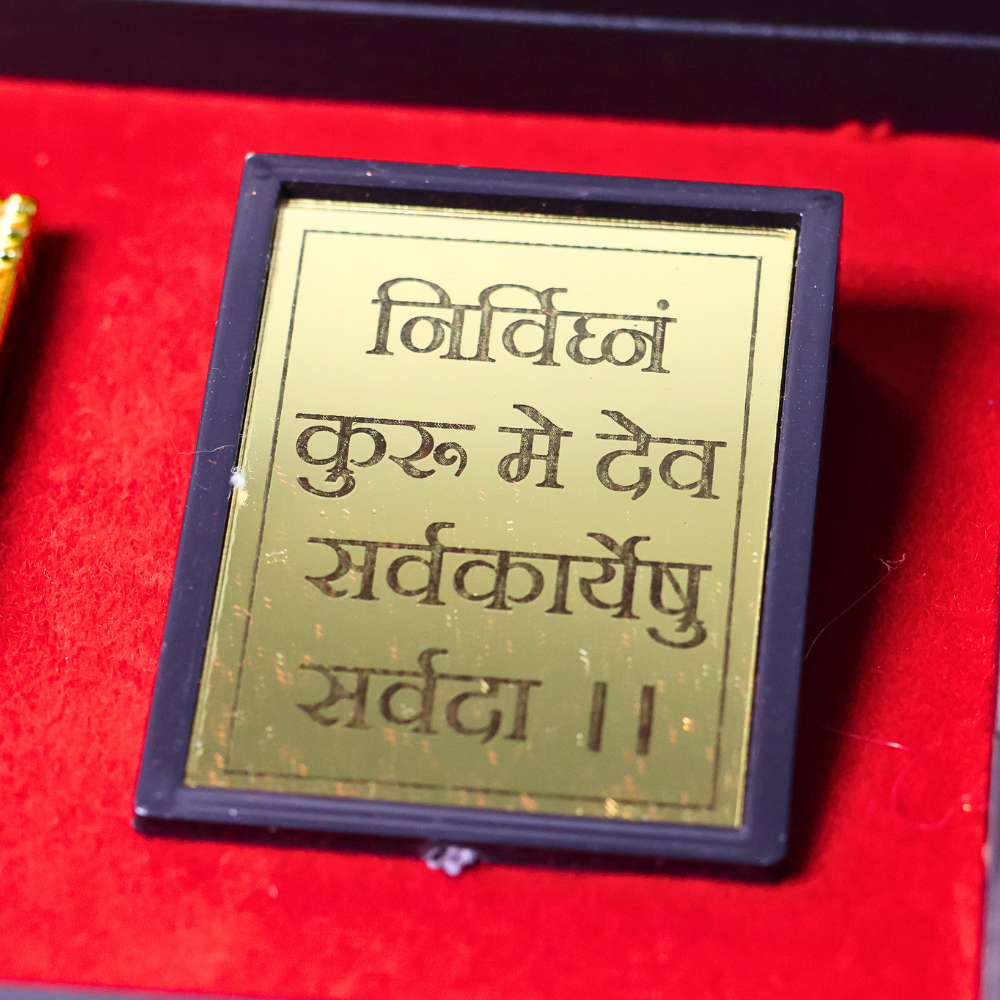 निर्विघ्नं
कुरू मे देव
सर्वकार्येषु
सर्वदा ।।